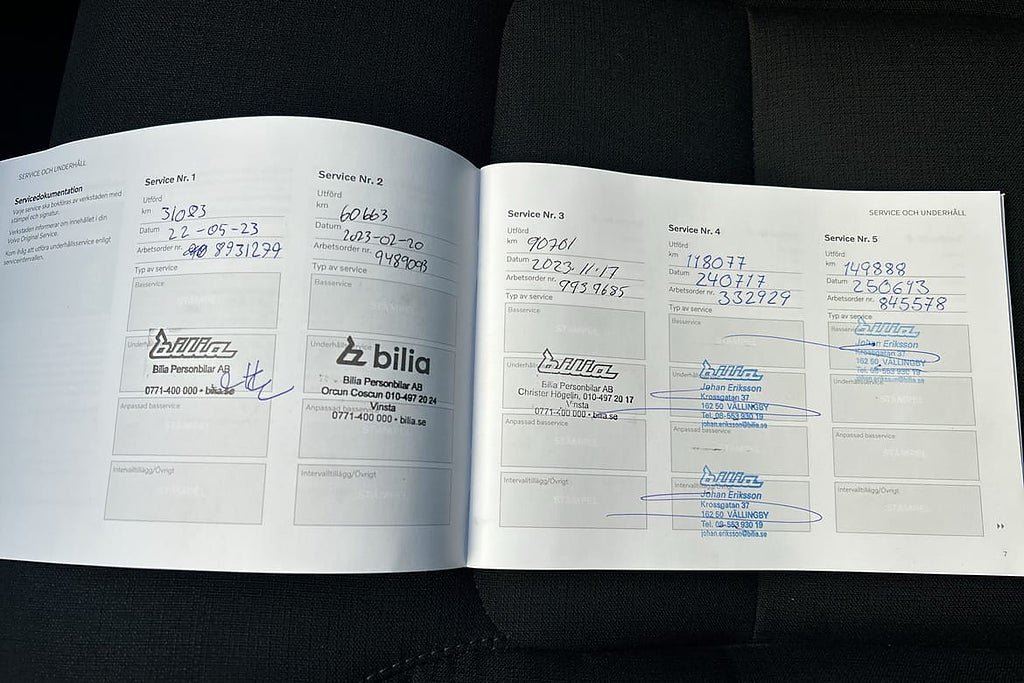 SERVICE OCH UNDERHÅLL
Servicedokumentation
Varje service ska bokföras av verkstaden med
stämpel och signatur.
Verkstaden informerar om innehållet i din
Volvo Original Service.
Kom ihåg att utföra underhållsservice enligt
serviceintervallen.
Service Nr. 1
Utförd
km 31083
Datum 22-05-23
Arbetsorder nr. 8931279
Typ av service
Basservice
STÄMPEL
Underhåll
bilia
Bilia Personbilar AB
0771-400 000 • bilia.se
Anpassad basservice
STÄMPEL
Intervalltillägg/Övrigt
STÄMPEL
Service Nr. 2
Utförd
km 60663
Datum 2023-02-20
Arbetsorder nr. 9489093
Typ av service
Basservice
STÄMPEL
bilia
Bilia Personbilar AB
Orcun Coscun 010-497 20 24
Vinsta
0771-400 000 • bilia.se
Anpassad basservice
Intervalltillägg/Övrigt
STÄMPEL
Service Nr. 3
Utförd
km 90701
Datum 2023.11.17
Arbetsorder nr. 9939685
Typ av service
Basservice
STÄMPEL
bilia
Bilia Personbilar AB
Christer Högelin, 010-497 20 17
Vinsta
0771-400 000 • bilia.se
Anpassad basservice
STÄMPEL
Intervalltillägg/Övrigt
STÄMPEL
SERVICE OCH UNDERHÅLL
Service Nr. 4
Utförd
km 118077
Datum 240717
Arbetsorder nr. 332929
Typ av service
Basservice
bilia
Johan Eriksson
Krossgatan 37
162 50 VÄLLINGBY
Tel. 08-553 930 19
johan.eriksson@bilia.se
Anpassad basservice
Intervalltillägg/Övrigt
bilia
Johan Eriksson
Krossgatan 37
162 50 VÄLLINGBY
Tel. 08-553 930 19
johan.eriksson@bilia.se
Service Nr. 5
Utförd
km 149888
Datum 250613
Arbetsorder nr. 845578
Typ av service
bilia
Johan Eriksson
Krossgatan 37
162 50 VÄLLINGBY
Tel. 08-553 930 19
johan.eriksson@bilia.se
STÄMPEL
Anpassad basservice
STÄMPEL
Intervalltillägg/Övrigt
STÄMPEL
7